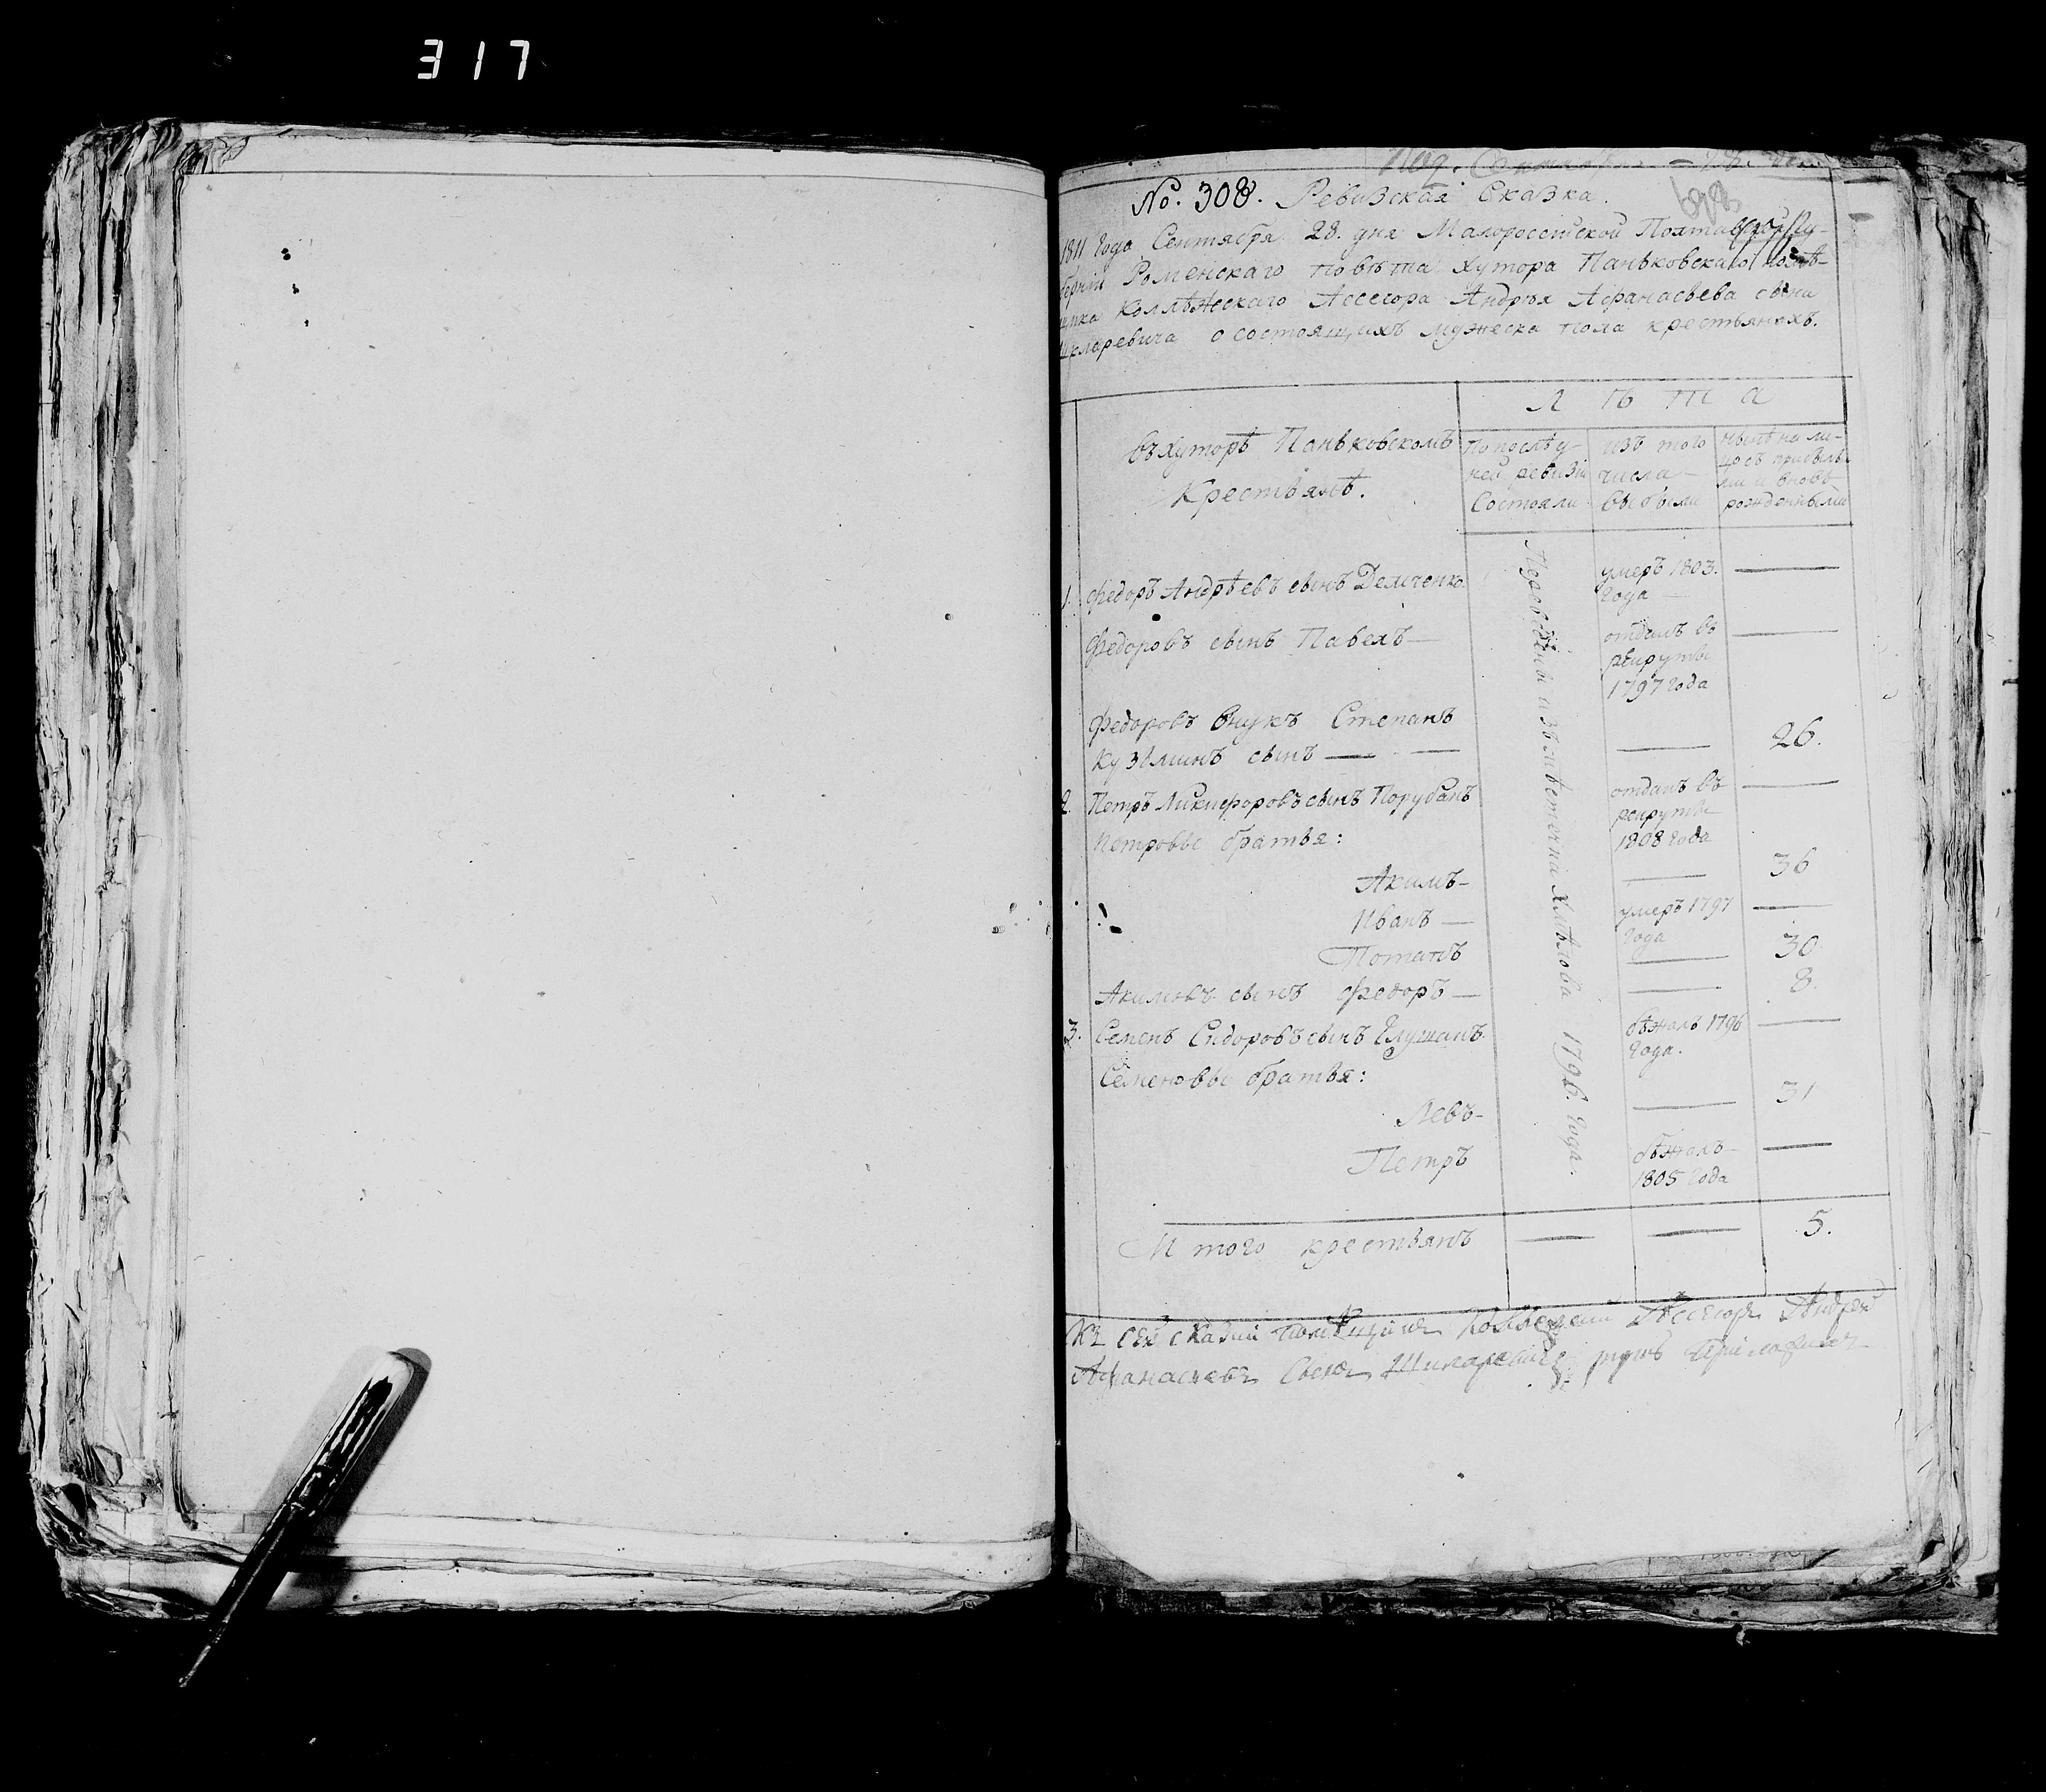 317
Под. Сентября
No. 308. Ревизская Сказка.
1811 года Сентября 28. дня Малороссійской Полтавской Гу-
берніи Роменскаго повѣта хутора Паньковскаго помѣ-
щика Коллѣжскаго Ассесора Андрѣя Афанасьева сына
Шкларевича о состоящихъ мужеска пола крестьянахъ.
Л ѣ т а
въ хуторѣ Паньковскомъ
Крестьянѣ.
По послѣд-
ней ревизіи
Состояли
изъ того
числа
выбыли
нынѣ на ли-
цо съ прибылы-
ми и вновь
рожденными
1. Федоръ Андрѣевъ сынъ Демченко умеръ 1803. —
года —
Федоровъ сынъ Павелъ — отданъ въ —
рекруты
1797 года
Федоровъ внукъ Степанъ
Кузьминъ сынъ — — — 26.
2. Петръ Никифоровъ сынъ Порубанъ отданъ въ —
рекруты
Петровы братья: 1808 года
Акимъ — — 36
Иванъ — умеръ 1797 —
года
Потапъ — 30
Акимовъ сынъ Федоръ — — 8.
3. Семенъ Сидоровъ сынъ Глушанъ бѣжалъ 1796 —
года.
Семеновы братья:
Левъ — — 31
Петръ бѣжалъ —
1805 года
Переведены изъ мѣстечка Хмѣлова 1796. года.
И того крестьянъ — — 5.
Къ сей сказки помѣщикъ Коллежскій Ассесоръ Андрей
Афанасьевъ Сынъ Шкларевичъ руку приложилъ